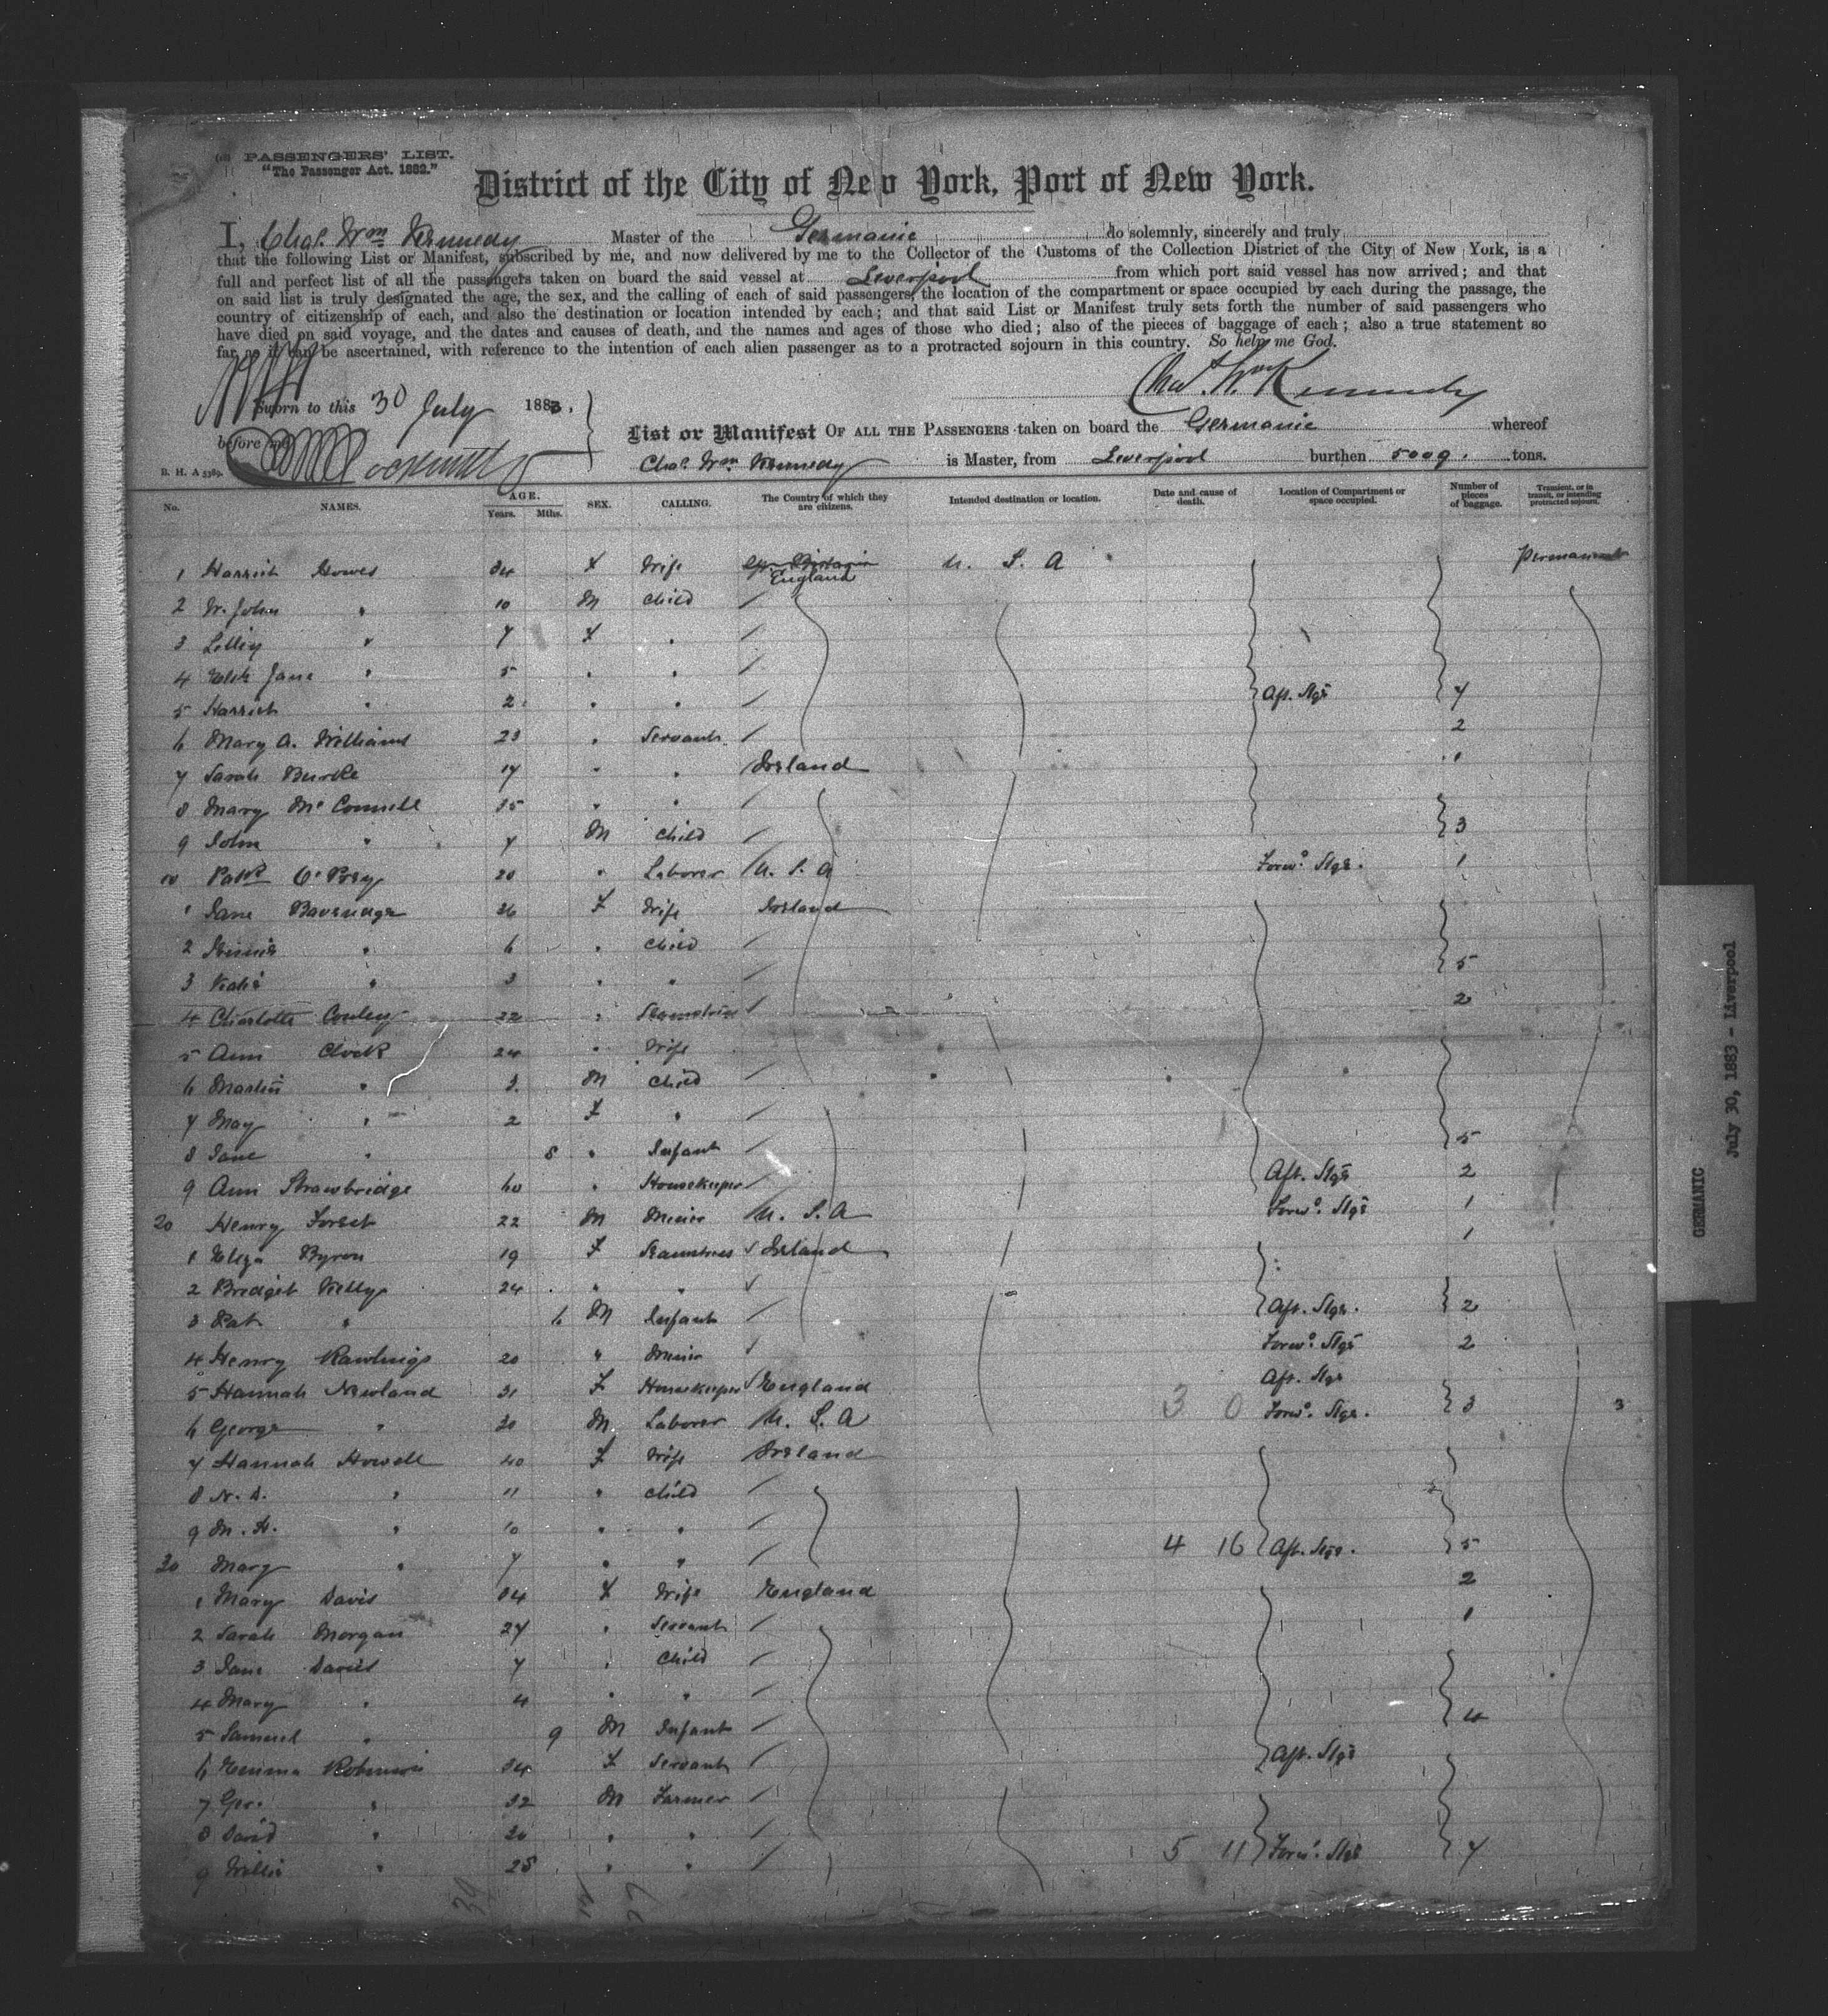 PASSENGERS' LIST.
"The Passenger Act. 1882."
District of the City of New York, Port of New York.
I, Chas. Wm Kennedy Master of the Germanic do solemnly, sincerely and truly
that the following List or Manifest, subscribed by me, and now delivered by me to the Collector of the Customs of the Collection District of the City of New York, is a
full and perfect list of all the passengers taken on board the said vessel at Liverpool from which port said vessel has now arrived; and that
on said list is truly designated the age, the sex, and the calling of each of said passengers, the location of the compartment or space occupied by each during the passage, the
country of citizenship of each, and also the destination or location intended by each; and that said List or Manifest truly sets forth the number of said passengers who
have died on said voyage, and the dates and causes of death, and the names and ages of those who died; also of the pieces of baggage of each; also a true statement so
far as it can be ascertained, with reference to the intention of each alien passenger as to a protracted sojourn in this country. So help me God.
Chas. Wm Kennedy
Sworn to this 30 July 1883.
before me
List or Manifest OF ALL THE PASSENGERS taken on board the Germanic whereof
B. H. A 5389. Chas. Wm Kennedy is Master, from Liverpool burthen 5009. tons.
No. NAMES. AGE. Years. Mths. SEX. CALLING. The Country of which they are citizens. Intended destination or location. Date and cause of death. Location of Compartment or space occupied. Number of pieces of baggage. Transient, or in transit, or intending protracted sojourn.
1 Harriet Howes 34 F Wife Gt. Britain England U. S. A Permanent
2 W. John " 10 M Child /
3 Lilley " 7 F " /
4 Eliz Jane " 5 " " /
5 Harriet " 2 " " / Aft. Stge 7
6 Mary A. Williams 23 " Servant / 2
7 Sarah Burke 17 " " Ireland 1
8 Mary McConnell 35 " " /
9 John " 7 M Child / 3
10 Patk 20 " Laborer / U. S. A Forwd Stge. 1
1 Jane 26 F Wife Ireland
2 " 6 " Child /
3 Katie " 3 " " / 5
4 Charlotte Conley 22 " Seamstress / 2
5 Ann Clock 24 " Wife
6 Martin " 3 M Child /
7 May " 2 F " /
8 Jane " 8 " Infant / 5
9 Ann Strawbridge 60 " Housekeeper / Aft. Stge 2
20 Henry 22 M Miner / U. S. A Forwd. Stge 1
1 Eliza Byron 19 F Seamstress / Ireland 1
2 Bridget Kelly 24 " " /
3 Pat " 6 M Infant / Aft. Stge. 2
4 Henry Rawlings 20 " Miner / Forwd Stge 2
5 Hannah Newland 31 F Housekeeper / England Aft. Stge
6 George " 30 M Laborer / U. S. A 3 0 Forwd. Stge. 3 3
7 Hannah Howell 40 F Wife Ireland
8 " 11 " Child /
9 M. H. " 10 " " /
30 Mary " 7 " " / 4 16 Aft. Stge. 5
1 Mary Davis 34 F Wife England 2
2 Sarah Morgan 27 " Servant / 1
3 Jane Davies 7 " Child /
4 Mary " 4 " " /
5 Samuel " 9 M Infant / 4
6 Emma Robinson 34 F Servant / Aft. Stge
7 Geo. " 32 M Farmer /
8 David " 30 " " /
9 Willie " 25 " " / 5 11 Forwd. Stge 7
39 27
GERMANIC
July 30, 1883 - Liverpool